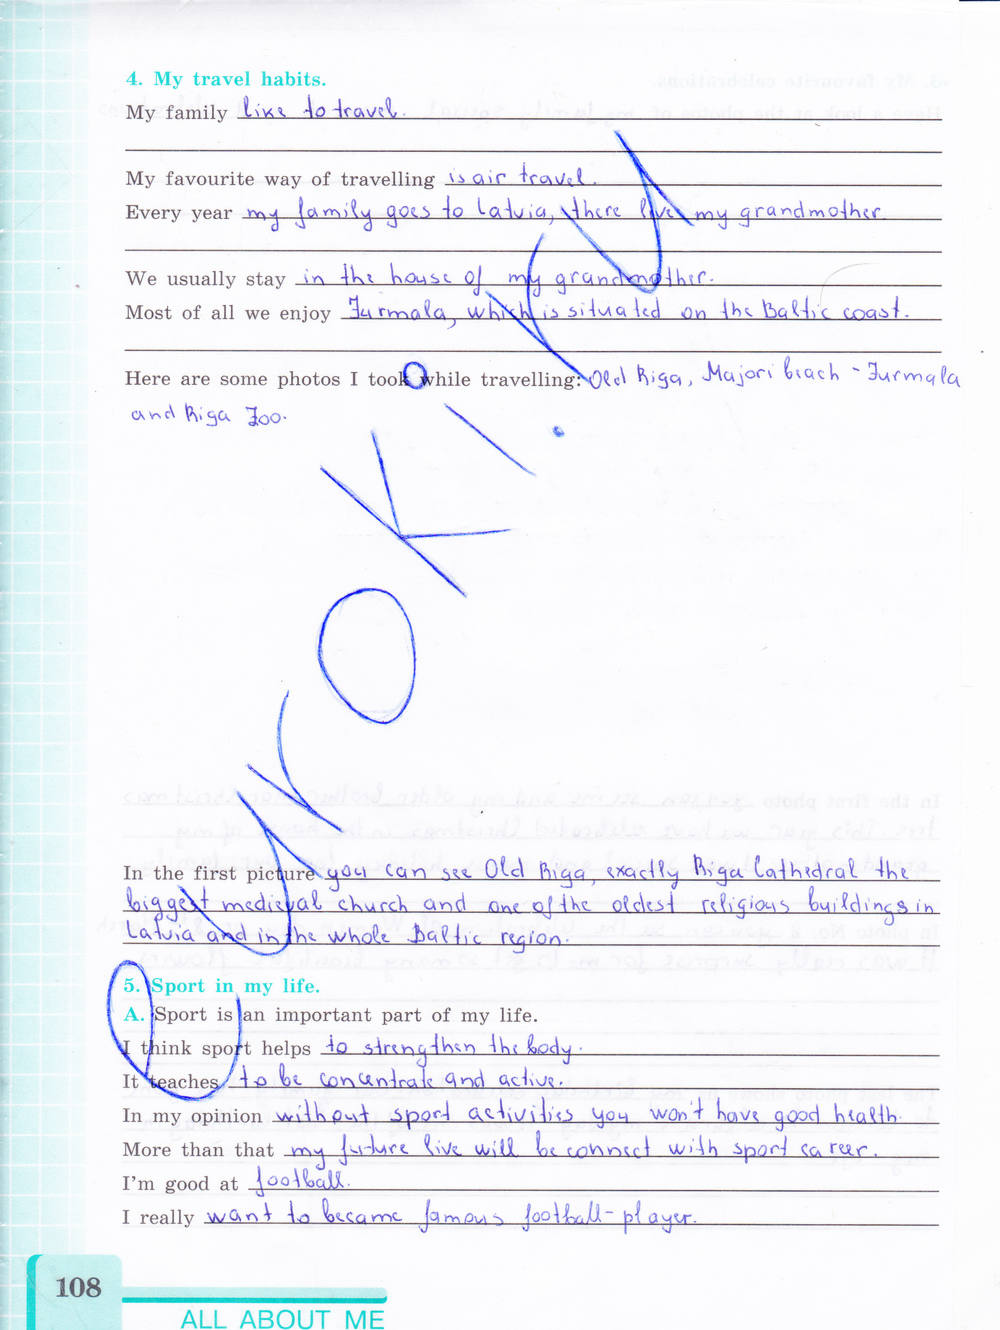 4. My travel habits.
My family like to travel.
My favourite way of travelling is air travel.
Every year my family goes to Latvia, there live my grandmother.
We usually stay in the house of my grandmother.
Most of all we enjoy Jurmala, which is situated on the Baltic coast.
Here are some photos I took while travelling: Old Riga, Majori beach - Jurmala
and Riga Zoo.
UROKI.RU
In the first picture you can see Old Riga, exactly Riga Cathedral the
biggest medieval church and one of the oldest religious buildings in
Latvia and in the whole Baltic region.
5. Sport in my life.
A. Sport is an important part of my life.
I think sport helps to strengthen the body.
It teaches to be concentrate and active.
In my opinion without sport activities you won't have good health.
More than that my future live will be connect with sport career.
I'm good at football.
I really want to became famous football-player.
108
ALL ABOUT ME